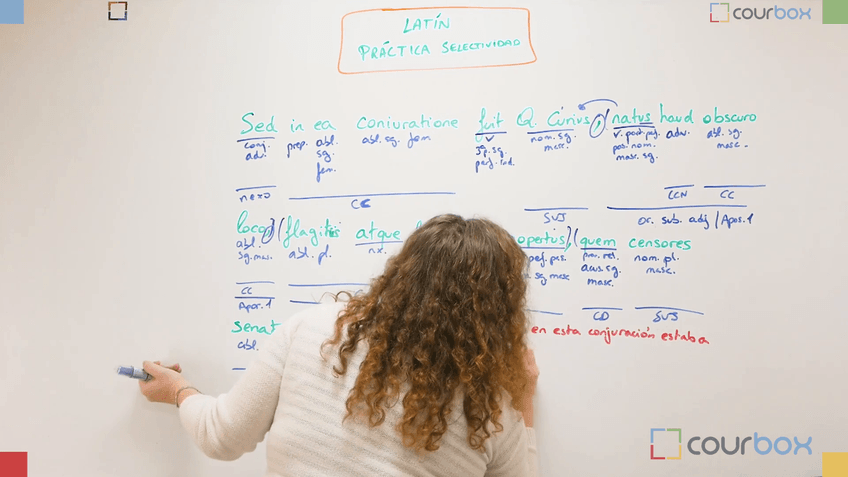 courbox
LATÍN
PRÁCTICA SELECTIVIDAD
Sed in ea coniuratione fuit Q. Curius, natus haud obscuro
conj. adv. prep. abl. sg. fem. abl. sg. fem. v 3ª p. sg. perf. ind. nom. sg. masc. v. part. perf. pas. nom. masc. sg. adv. abl. sg. masc.
nexo CC SUJ CCN CC
Or. sub. adj / Apos. 1
loco, (flagitiis atque opertus), (quem censores
abl. sg. mas. abl. pl. nx. sg masc pron. rel. acus. sg. masc. nom. pl. masc.
CC CD SUJ
Apos. 1
senat en esta conjuración estaba
abl.
courbox